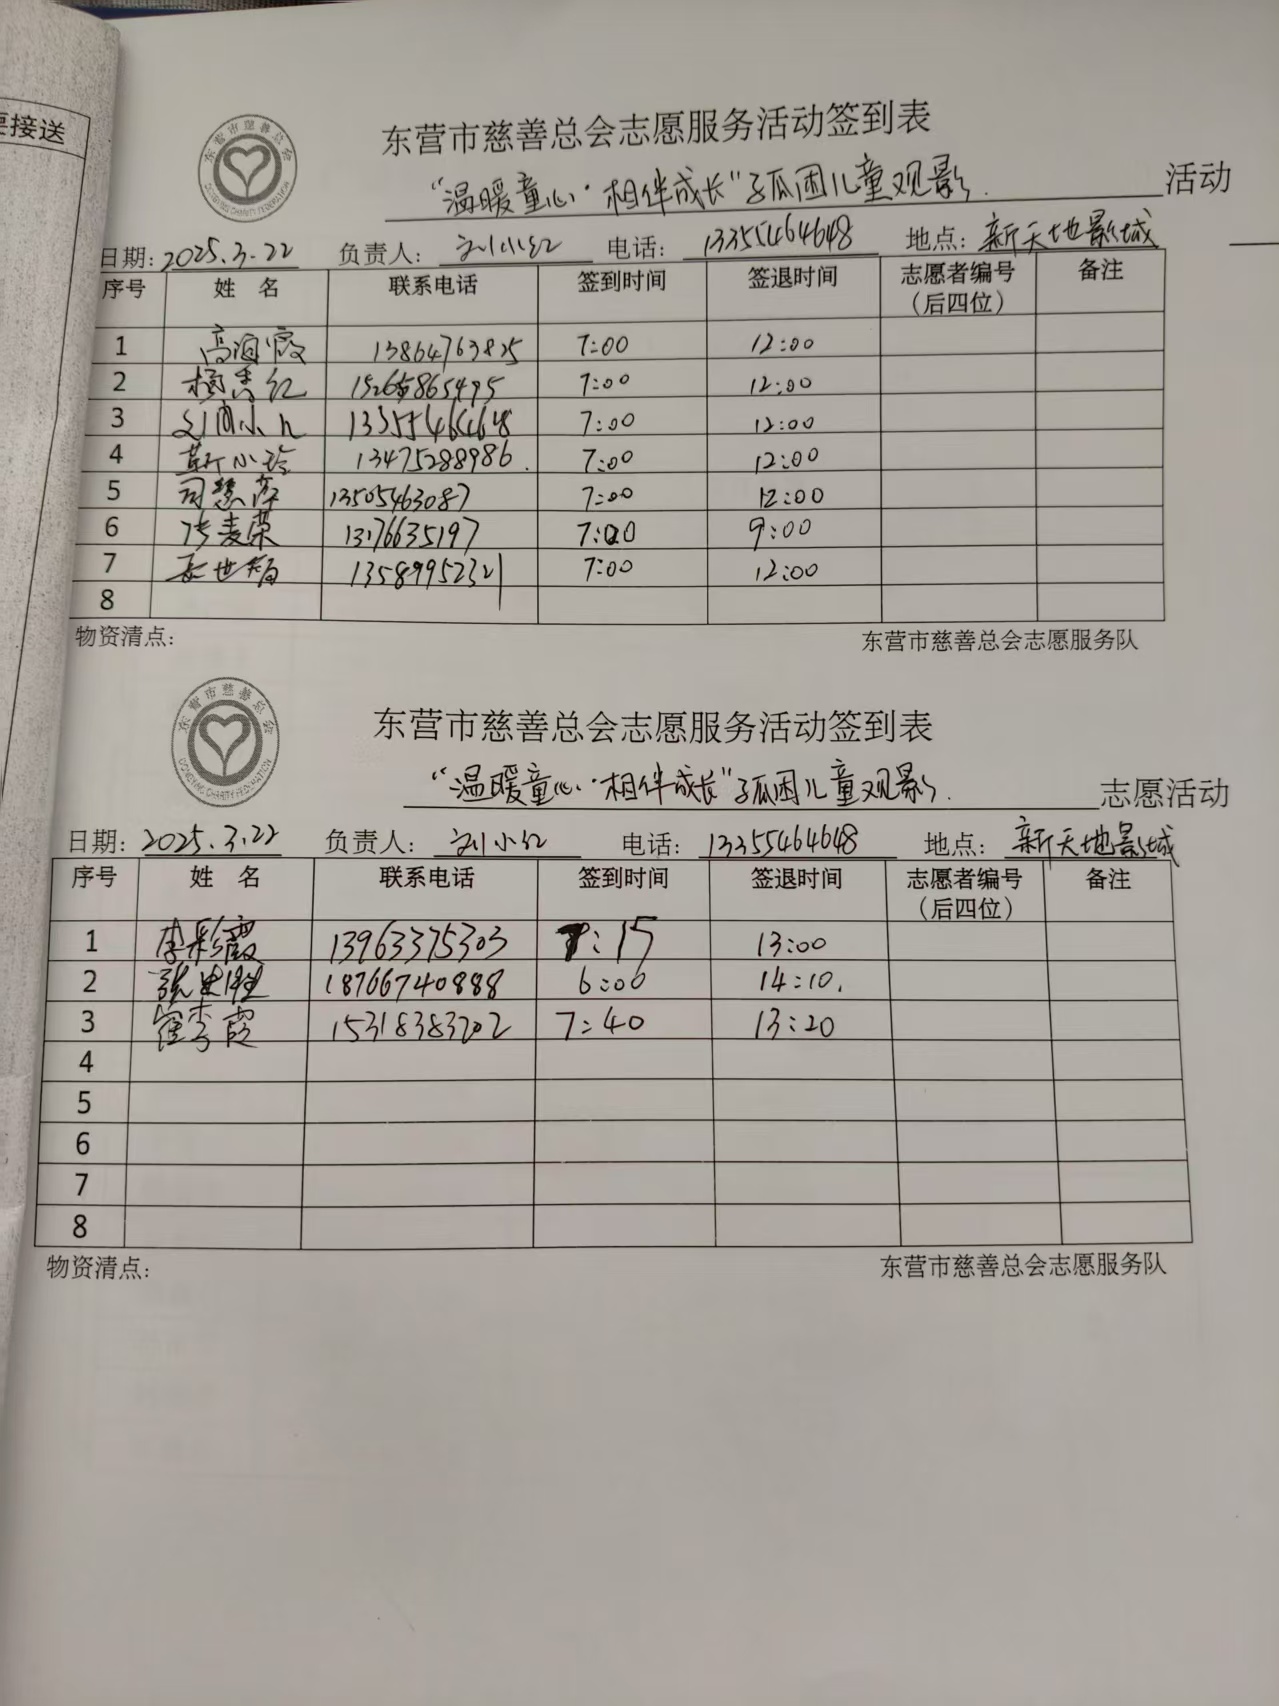 要接送
东营市慈善总会
DONGYING CHARITY FEDERATION
东营市慈善总会志愿服务活动签到表
“温暖童心·相伴成长”孤困儿童观影. 活动
日期: 2025.3.22 负责人: 刘小红 电话: 13355464648 地点: 新天地影城
序号 姓 名 联系电话 签到时间 签退时间 志愿者编号 备注
（后四位）
1 高海霞 13864763825 7:00 12:00
2 杨秀红 15265865495 7:00 12:00
3 刘小红 13355464648 7:00 12:00
4 靳小玲 13475288986 7:00 12:00
5 司慧萍 13505463087 7:00 12:00
6 张麦荣 13176635197 7:00 9:00
7 世 13589952321 7:00 12:00
8
物资清点: 东营市慈善总会志愿服务队
东营市慈善总会
DONGYING CHARITY FEDERATION
东营市慈善总会志愿服务活动签到表
“温暖童心·相伴成长”孤困儿童观影. 志愿活动
日期: 2025.3.22 负责人: 刘小红 电话: 13355464648 地点: 新天地影城
序号 姓 名 联系电话 签到时间 签退时间 志愿者编号 备注
（后四位）
1 李彩霞 13963375303 7:15 13:00
2 张 胜 18766740888 6:00 14:10.
3 崔秀霞 15318383202 7:40 13:20
4
5
6
7
8
物资清点: 东营市慈善总会志愿服务队